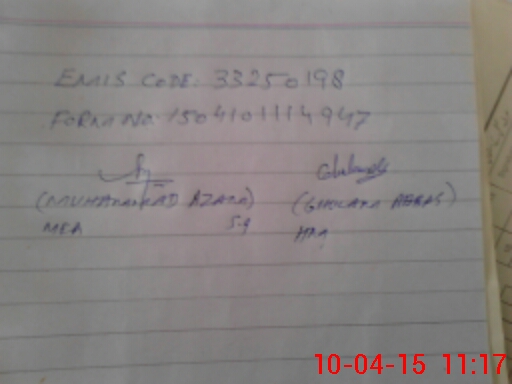 EMIS CODE: 33250198
FORM NO. 1504101114947
(MUHAMMAD AZAM) (GHULAM ABBAS)
MEA
10-04-15 11:17